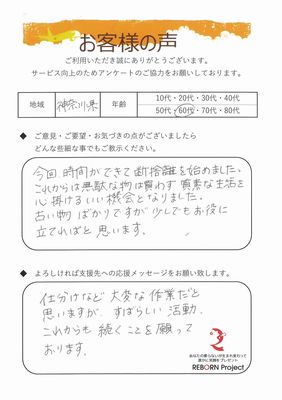 お客様の声
ご利用いただき誠にありがとうございます。
サービス向上のためアンケートのご協力をお願いしております。
地域 神奈川県 年齢 10代・20代・30代・40代
50代・60代・70代・80代
◆ ご意見・ご要望・お気づきの点がございましたら
どんな些細な事でもご教示ください。
今回時間ができて断捨離を始めました。
これからは無駄な物は買わず質素な生活を
心掛けるいい機会となりました。
古い物ばかりですが少しでもお役に
立てればと思います。
◆ よろしければ支援先への応援メッセージをお願い致します。
仕分けなど大変な作業だと
思いますが、すばらしい活動、
これからも続くことを願って
おります。
あなたの要らないが生まれ変わって
誰かに笑顔をプレゼント
REBORN Project